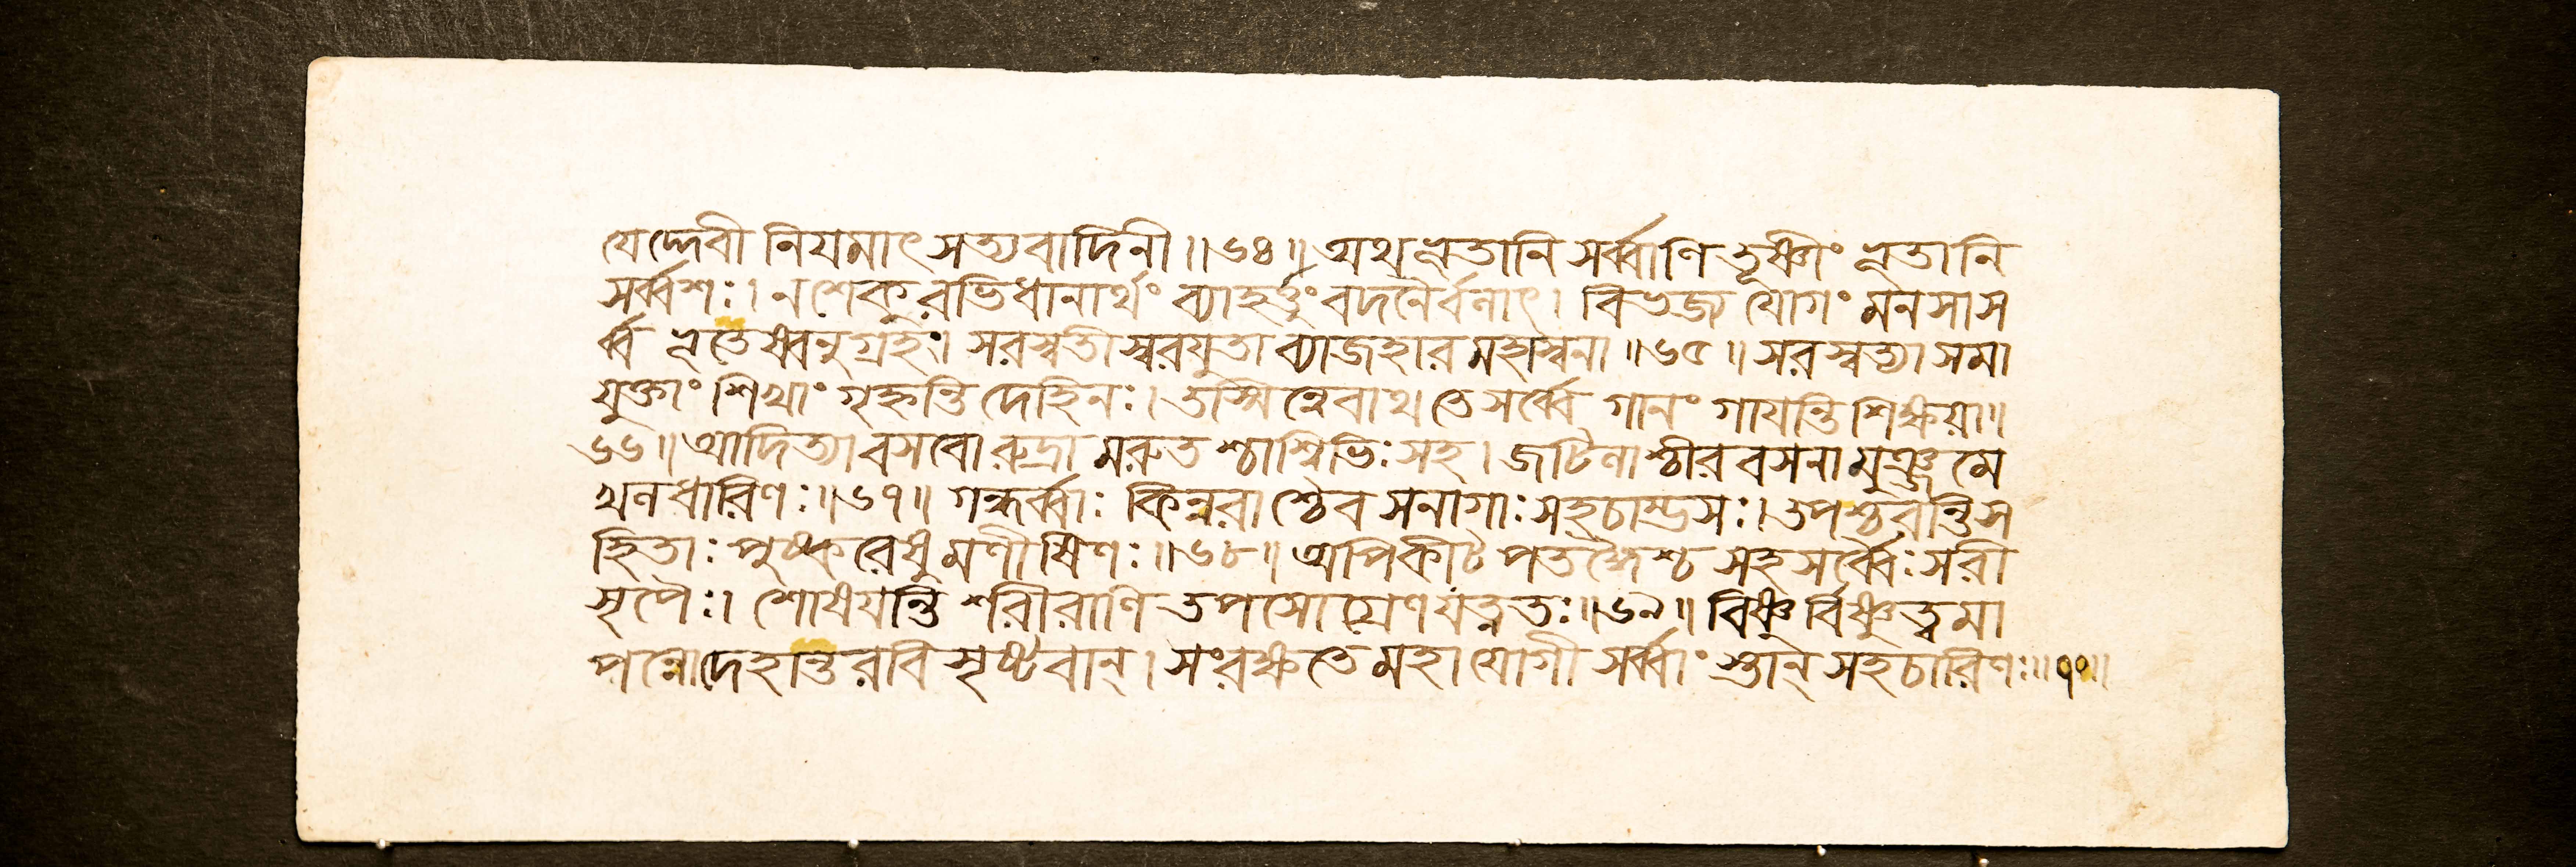 যেদ্দেবী নিযমাৎ সত্যবাদিনী॥৬৪॥ অথ ভূতানি সর্ব্বাণি তূষ্ণীং ভূতানি
সর্ব্বশঃ। ন শেকুরভিধানার্থং ব্যাহর্ত্তুং বদনৈর্বনাৎ। বিভজ্য যোগং মনসা স
র্ব্ব ভূতেষ্বনুগ্রহঃ। সরস্বতী স্বরযুতা ব্যাজহার মহাস্বনা॥৬৫॥ সরস্বত্যা সমা
যুক্তাং শিখাং গৃহ্নন্তি দেহিনঃ। তস্মিন্নেবাথ তে সর্ব্বে গানং গাযন্তি শিক্ষয়া॥
৬৬॥ আদিত্যা বসবো রুদ্রা মরুতশ্চাশ্বিভিঃ সহ। জটিণাশ্চীরবসনা মুঞ্জমে
খনধারিণঃ॥৬৭॥ গন্ধর্ব্বাঃ কিন্নরাশ্চৈব সনাগাঃ সহচাম্ভ্রসঃ। তপশ্চরন্তি স
হিতাঃ পুষ্করেষু মণীষিণঃ॥৬৮॥ অপি কীট পতঙ্গৈশ্চ সহ সর্ব্বৈঃ সরী
সৃপৈঃ। শোষযন্তি শরীরাণি তপসোগ্রেণ যত্নতঃ॥৬৯॥ বিষ্ণুর্বিষ্ণুত্বমা
পন্নো দেহান্তরবিসৃষ্টবান্। সংরক্ষতে মহাযোগী সর্ব্বাংস্তান্ সহচারিণঃ॥৭০॥